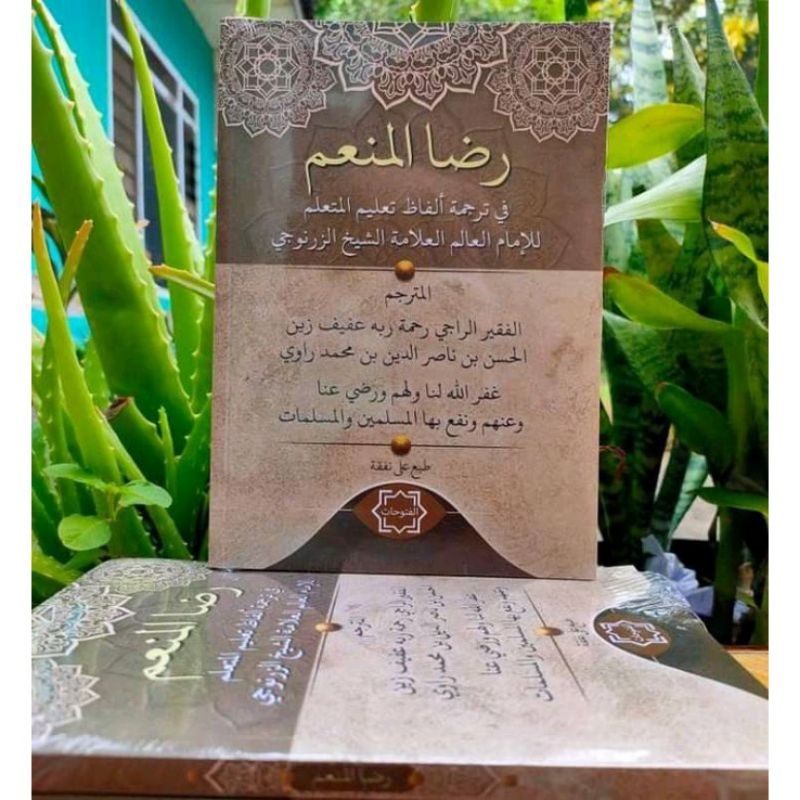 رضا المنعم
في ترجمة ألفاظ تعليم المتعلم
للإمام العالم العلامة الشيخ الزرنوجي
المترجم
الفقير الراجي رحمة ربه عفيف زين
الحسن بن ناصر الدين بن محمد راوي
غفر الله لنا ولهم ورضي عنا
وعنهم ونفع بها المسلمين والمسلمات
طبع على نفقة
الفتوحات
رضا المنعم
في ترجمة ألفاظ تعليم المتعلم
للإمام العالم العلامة الشيخ الزرنوجي
المترجم
الفقير الراجي رحمة ربه عفيف زين
الحسن بن ناصر الدين بن محمد راوي
غفر الله لنا ولهم ورضي عنا
وعنهم ونفع بها المسلمين والمسلمات
طبع على نفقة
رضا المنعم